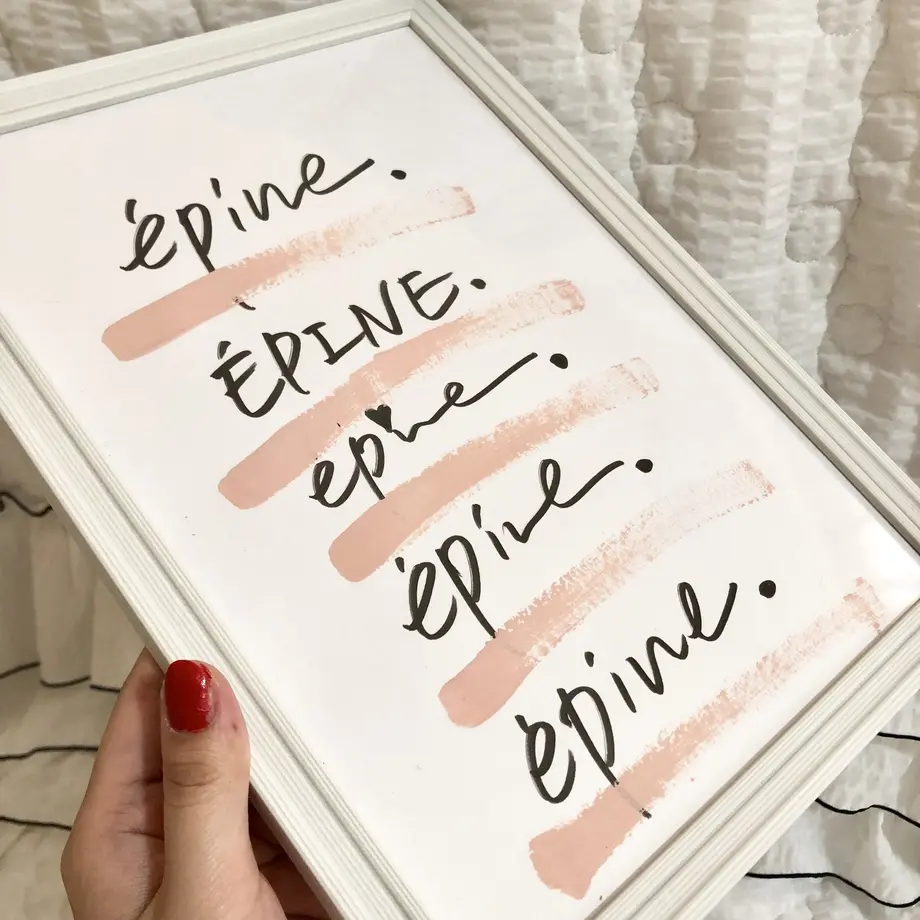 épine.
ÉPINE.
epine.
épine.
épine.